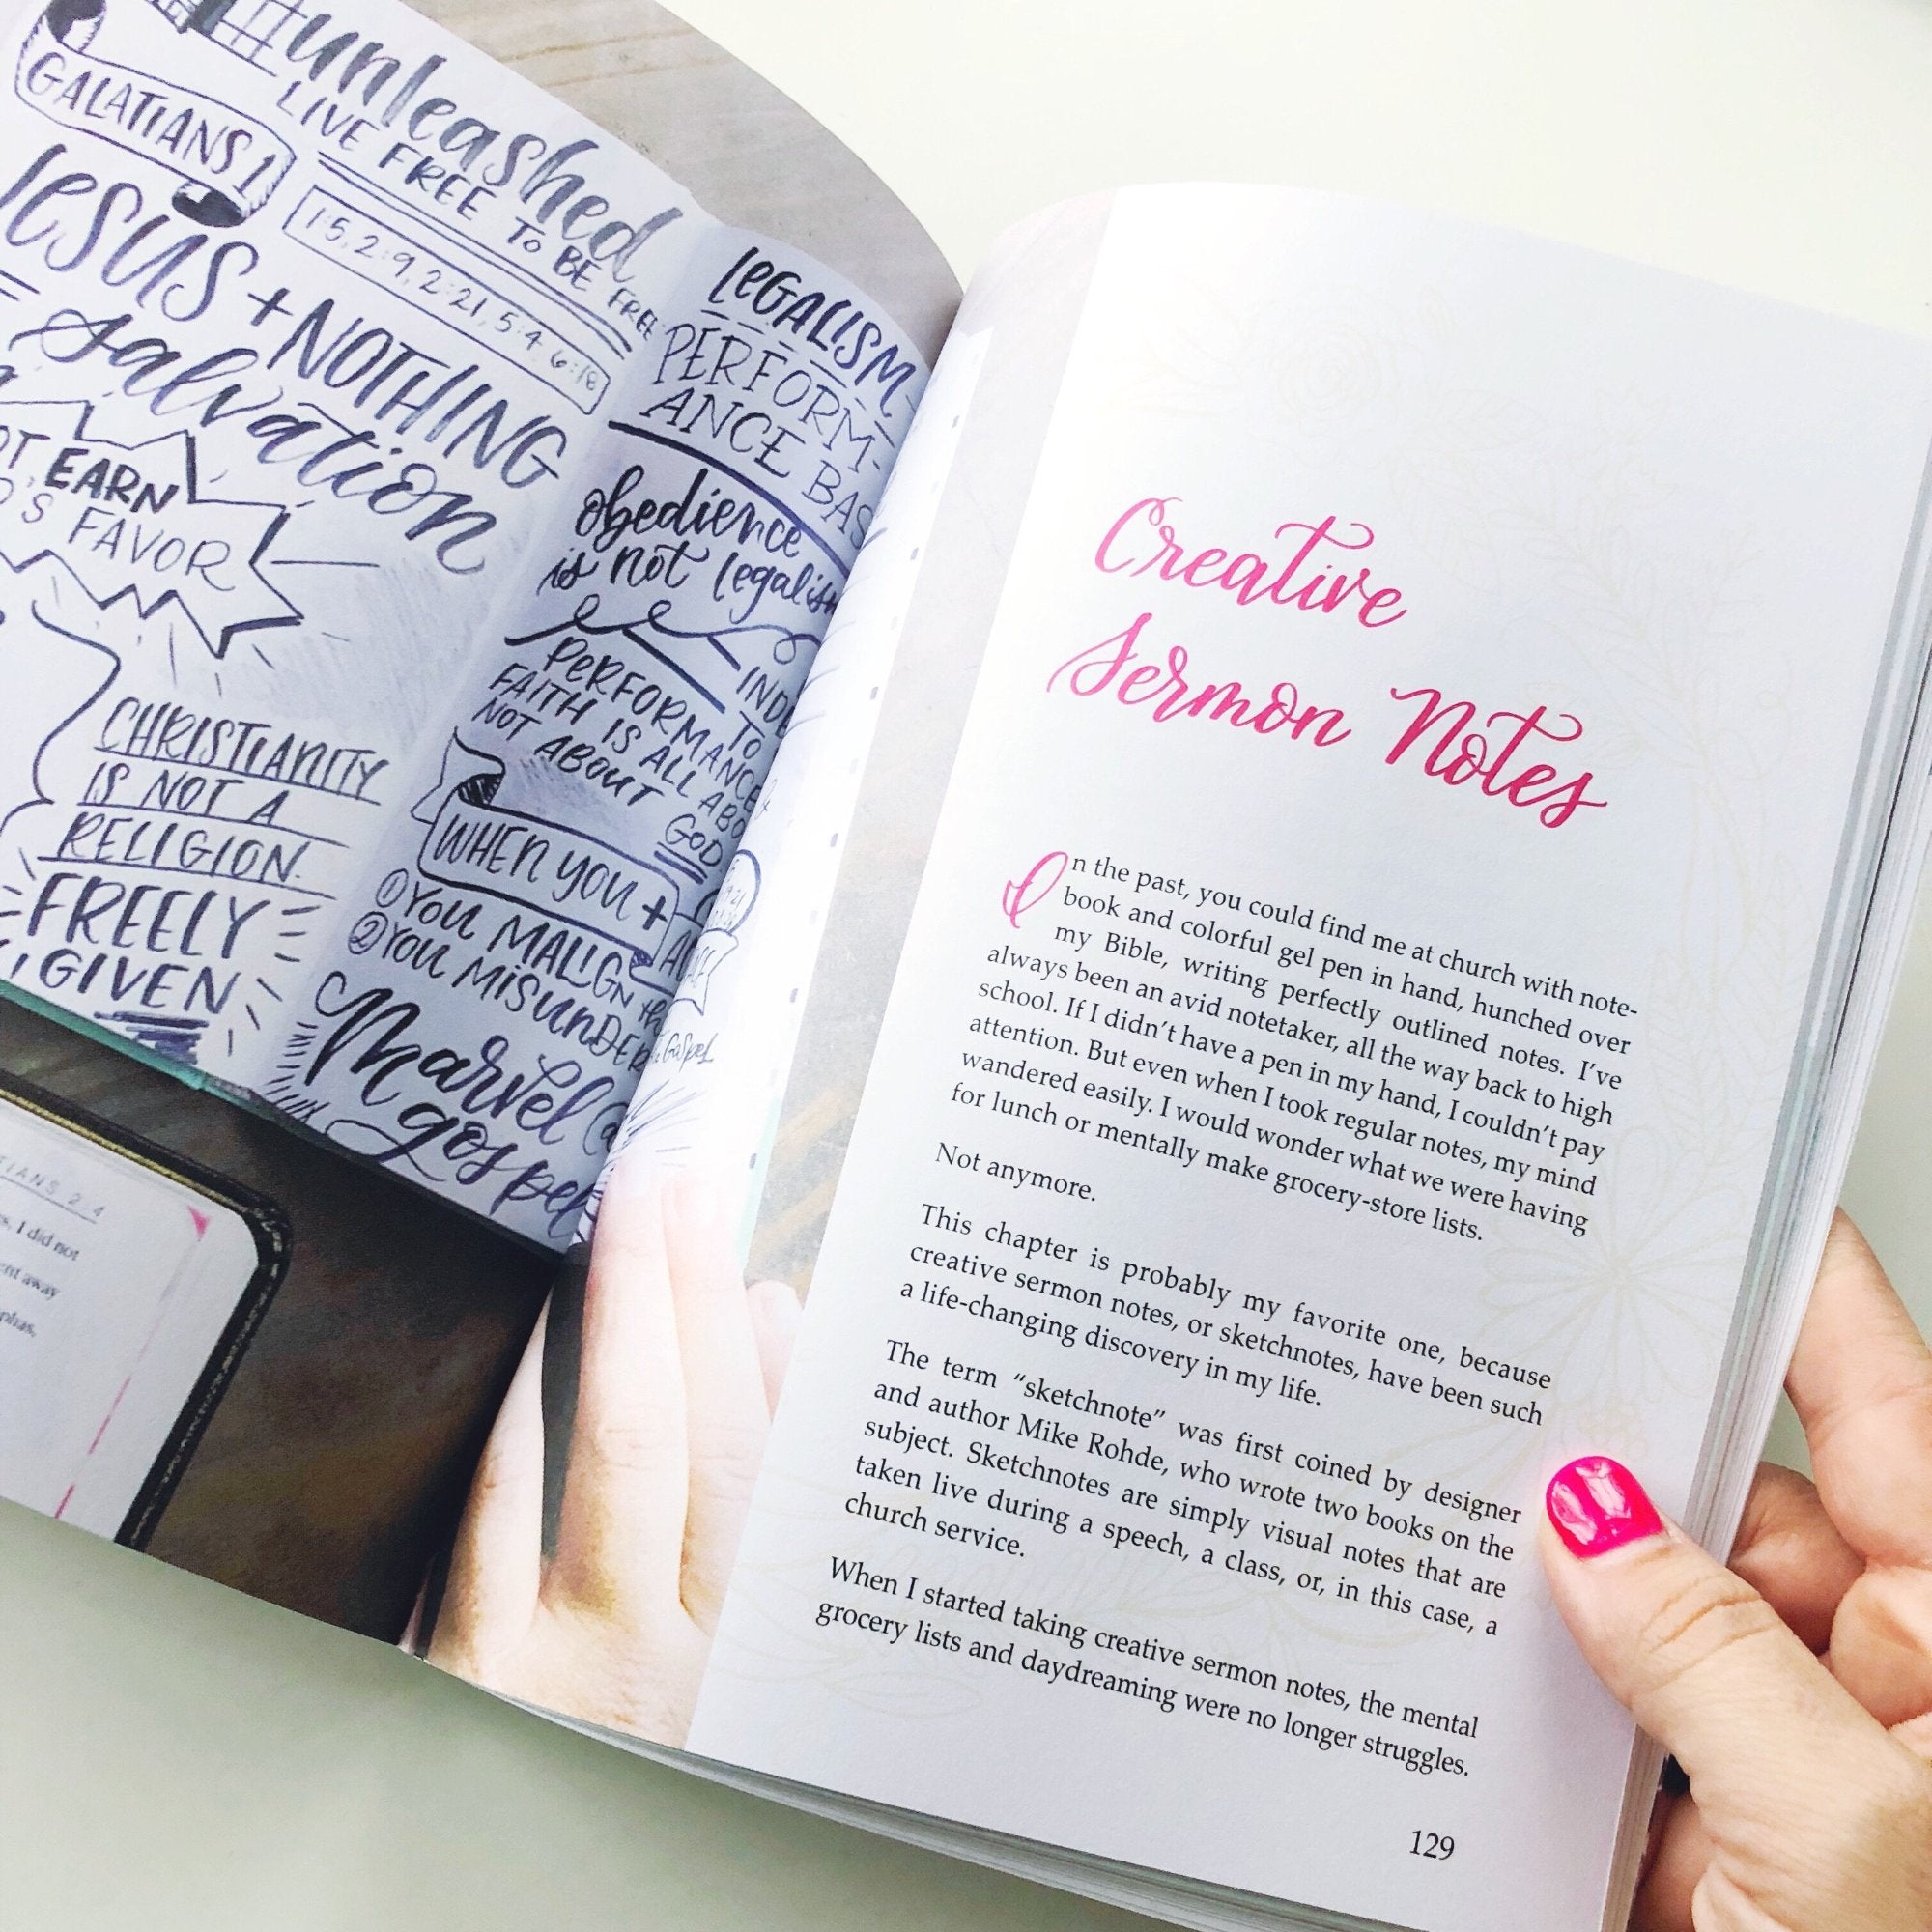 #unleashed
LIVE FREE TO BE FREE
GALATIANS 1
1:5, 2:9, 2:21, 5:4, 6:18
Jesus + NOTHING
salvation
EARN
FAVOR
CHRISTIANITY
IS NOT A
RELIGION.
FREELY
GIVEN
LEGALISM-
PERFORM-
ANCE BAS
obedience
is not legalism
PERFORMANCE
FAITH IS ALL ABO
NOT ABOUT
TO
GOD
WHEN YOU +
① YOU MALIGN the
② YOU MISUNDER
Gospel
Marvel @
gospel
I did not
away
Creative
Sermon Notes
In the past, you could find me at church with note-
book and colorful gel pen in hand, hunched over
my Bible, writing perfectly outlined notes. I've
always been an avid notetaker, all the way back to high
school. If I didn't have a pen in my hand, I couldn't pay
attention. But even when I took regular notes, my mind
wandered easily. I would wonder what we were having
for lunch or mentally make grocery-store lists.
Not anymore.
This chapter is probably my favorite one, because
creative sermon notes, or sketchnotes, have been such
a life-changing discovery in my life.
The term "sketchnote" was first coined by designer
and author Mike Rohde, who wrote two books on the
subject. Sketchnotes are simply visual notes that are
taken live during a speech, a class, or, in this case, a
church service.
When I started taking creative sermon notes, the mental
grocery lists and daydreaming were no longer struggles.
129